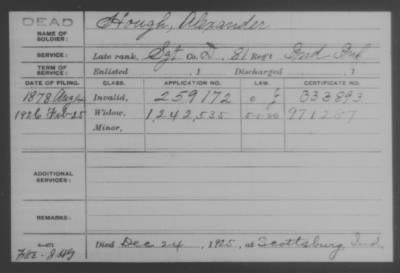 DEAD
NAME OF SOLDIER: Hough, Alexander
SERVICE: Late rank, Sgt Co. D, 81 Reg't Ind Inf
TERM OF SERVICE: Enlisted , 1 Discharged , 1
DATE OF FILING. CLASS. APPLICATION NO. LAW. CERTIFICATE NO.
1878 Invalid, 259172 333893
1926 Feb 25 Widow, 1,242,535 5-1-20 971287
Minor,
ADDITIONAL SERVICES:
REMARKS:
Died Dec 24, 1925, at Scottsburg, Ind.